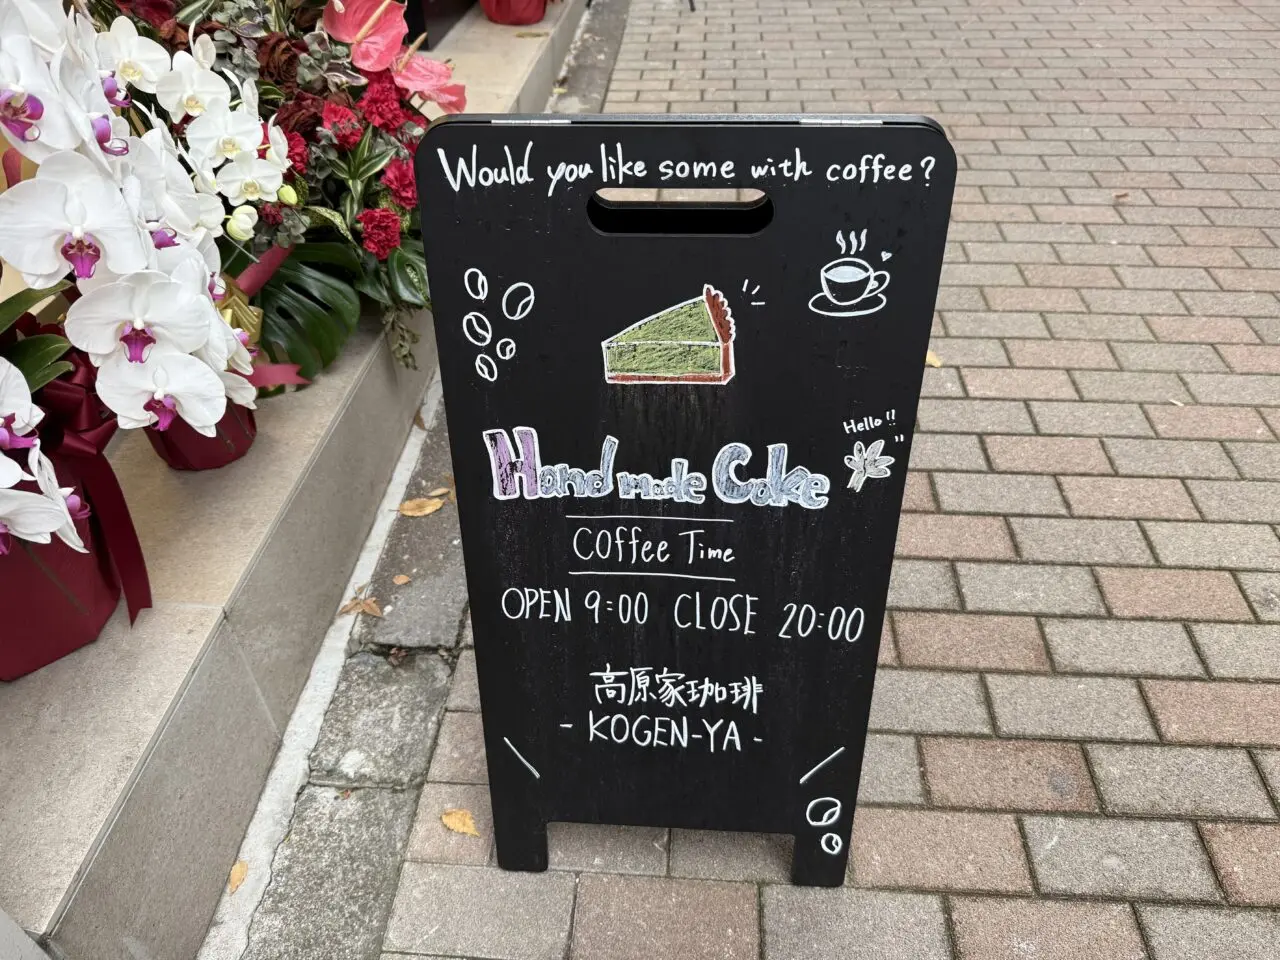 Would you like some with coffee?
Hello!!
Handmade Cake
Coffee Time
OPEN 9:00 CLOSE 20:00
高原家珈琲
- KOGEN-YA -